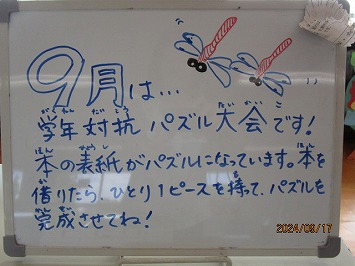 9月は…
学年対抗 パズル大会です!
本の表紙がパズルになっています。本を
借りたら、ひとり1ピースを持って、パズルを
完成させてね!
2024/09/17